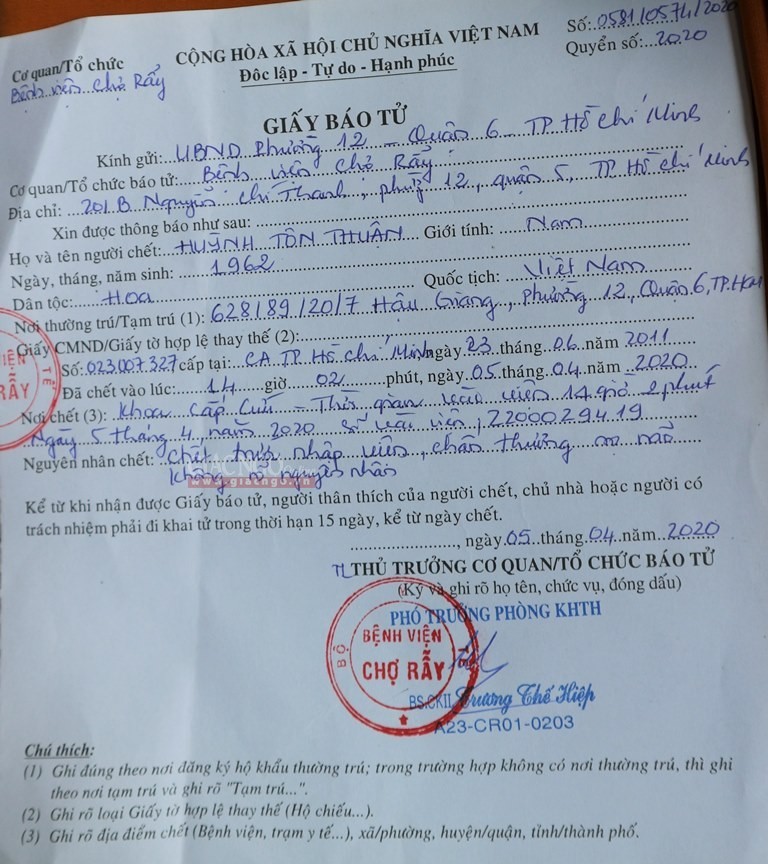 Cơ quan/Tổ chức
Bệnh viện Chợ Rẫy
CỘNG HÒA XÃ HỘI CHỦ NGHĨA VIỆT NAM
Độc lập - Tự do - Hạnh phúc
Số: 0581/0574/2020
Quyển số: 2020
GIẤY BÁO TỬ
Kính gửi: UBND Phường 12 - Quận 6 - TP Hồ Chí Minh
Cơ quan/Tổ chức báo tử: Bệnh viện Chợ Rẫy
Địa chỉ: 201B Nguyễn Chí Thanh, phường 12, quận 5, TP Hồ Chí Minh
Xin được thông báo như sau:
Họ và tên người chết: HUỲNH TÔN THUẬN Giới tính: Nam
Ngày, tháng, năm sinh: 1962
Dân tộc: Hoa Quốc tịch: Việt Nam
Nơi thường trú/Tạm trú (1): 628/89/20/7 Hậu Giang, Phường 12, Quận 6, TP.HCM
Giấy CMND/Giấy tờ hợp lệ thay thế (2):
Số: 023.007.327 cấp tại: CA TP Hồ Chí Minh ngày 23 tháng 06 năm 2011
Đã chết vào lúc: 14 giờ 02 phút, ngày 05 tháng 04 năm 2020
Nơi chết (3): Khoa Cấp Cứu - Thời gian vào viện 14 giờ 2 phút
Ngày 5 tháng 4, năm 2020 số vào viện, 2200029419
Nguyên nhân chết: chết trước nhập viện, chấn thương sọ não
không rõ nguyên nhân
GIÁC NGỘ
www.giacngo.vn
Kể từ khi nhận được Giấy báo tử, người thân thích của người chết, chủ nhà hoặc người có
trách nhiệm phải đi khai tử trong thời hạn 15 ngày, kể từ ngày chết.
, ngày 05 tháng 04 năm 2020
TL THỦ TRƯỞNG CƠ QUAN/TỔ CHỨC BÁO TỬ
(Ký và ghi rõ họ tên, chức vụ, đóng dấu)
PHÓ TRƯỞNG PHÒNG KHTH
BỘ
BỆNH VIỆN
CHỢ RẪY
BS.CKII Trương Thế Hiệp
A23-CR01-0203
Chú thích:
(1) Ghi đúng theo nơi đăng ký hộ khẩu thường trú; trong trường hợp không có nơi thường trú, thì ghi
theo nơi tạm trú và ghi rõ "Tạm trú...".
(2) Ghi rõ loại Giấy tờ hợp lệ thay thế (Hộ chiếu...).
(3) Ghi rõ địa điểm chết (Bệnh viện, trạm y tế...), xã/phường, huyện/quận, tỉnh/thành phố.